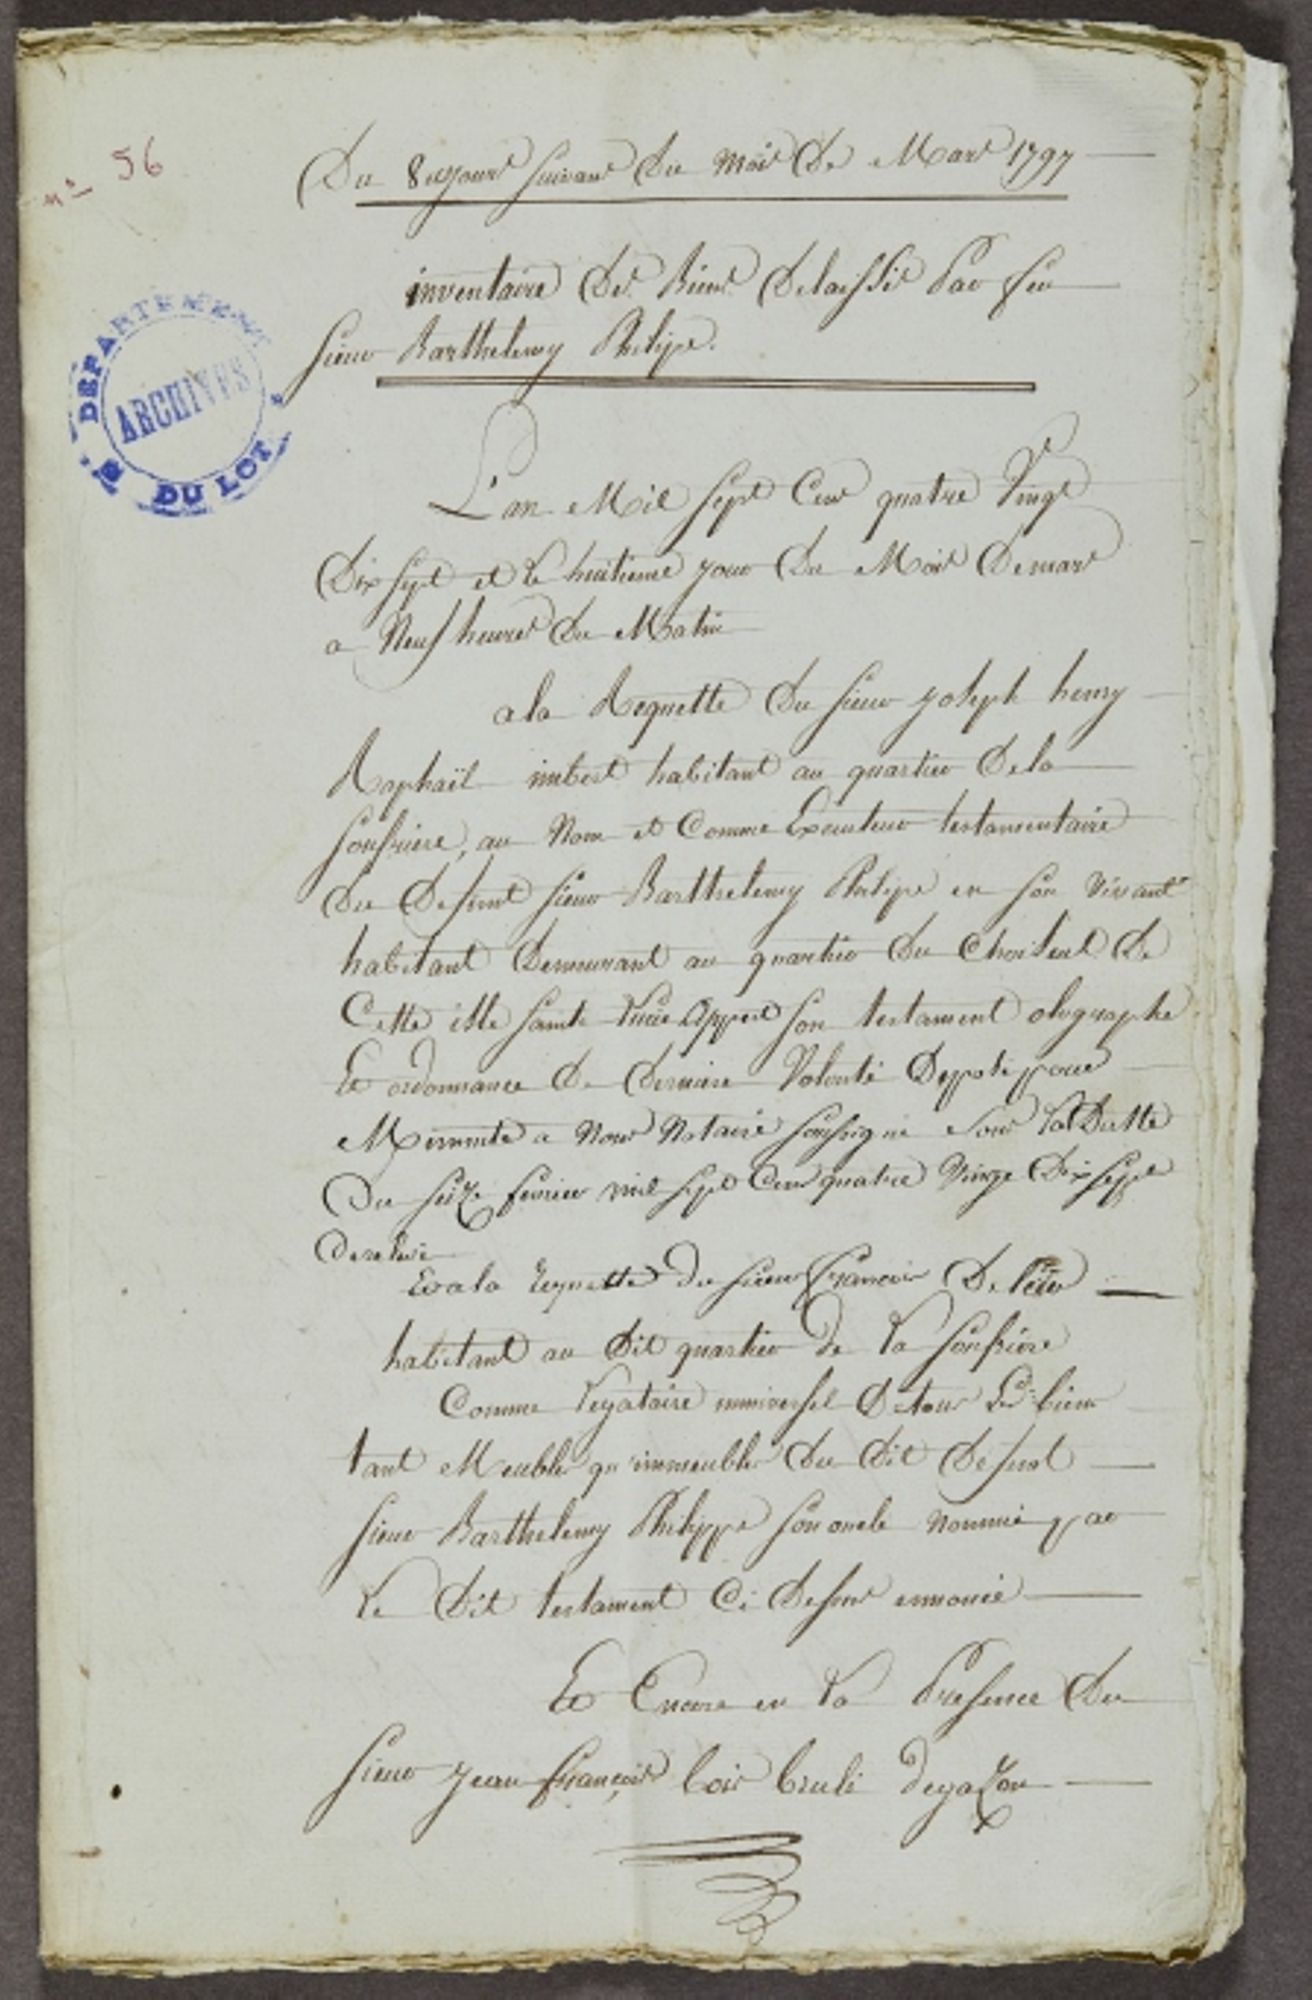 n° 56
Du 8e jours suivant du mois de Mars 1797
inventaire des Biens delaissés Par feu
sieur Barthelemy Philipe.
DÉPARTEMENT
ARCHIVES
DU LOT
L'an Mil sept Cent quatre Vingt
Dix sept et le huitieme jour du Mois de mars
a Neuf heures du Matin
a la Requette du sieur joseph henry
Raphaël imbert habitant au quartier de la
soufriere, au Nom et Comme Executeur testamentaire
du Defunt sieur Barthelemy Philipe en son Vivant
habitant demeurant au quartier du Choiseul de
Cette isle sainte Lucie appert son testament olographe
Et ordonnance de derniere Volonté Deposé pour
Minnute a Nous Notaire soussigné sous la Datte
du seize fevrier mil sept Cent quatre Vingt Dix sept
Et a la requette du sieur François De
habitant au dit quartier de la soufriere
Comme legataire universel de tous les biens
tant Meubles qu'immeubles du dit defunt
sieur Barthelemy Philippe son oncle nommé par
le dit testament Ci dessus ennoncé
Et Encore en la Presence du
sieur jean françois bois brulé degazon